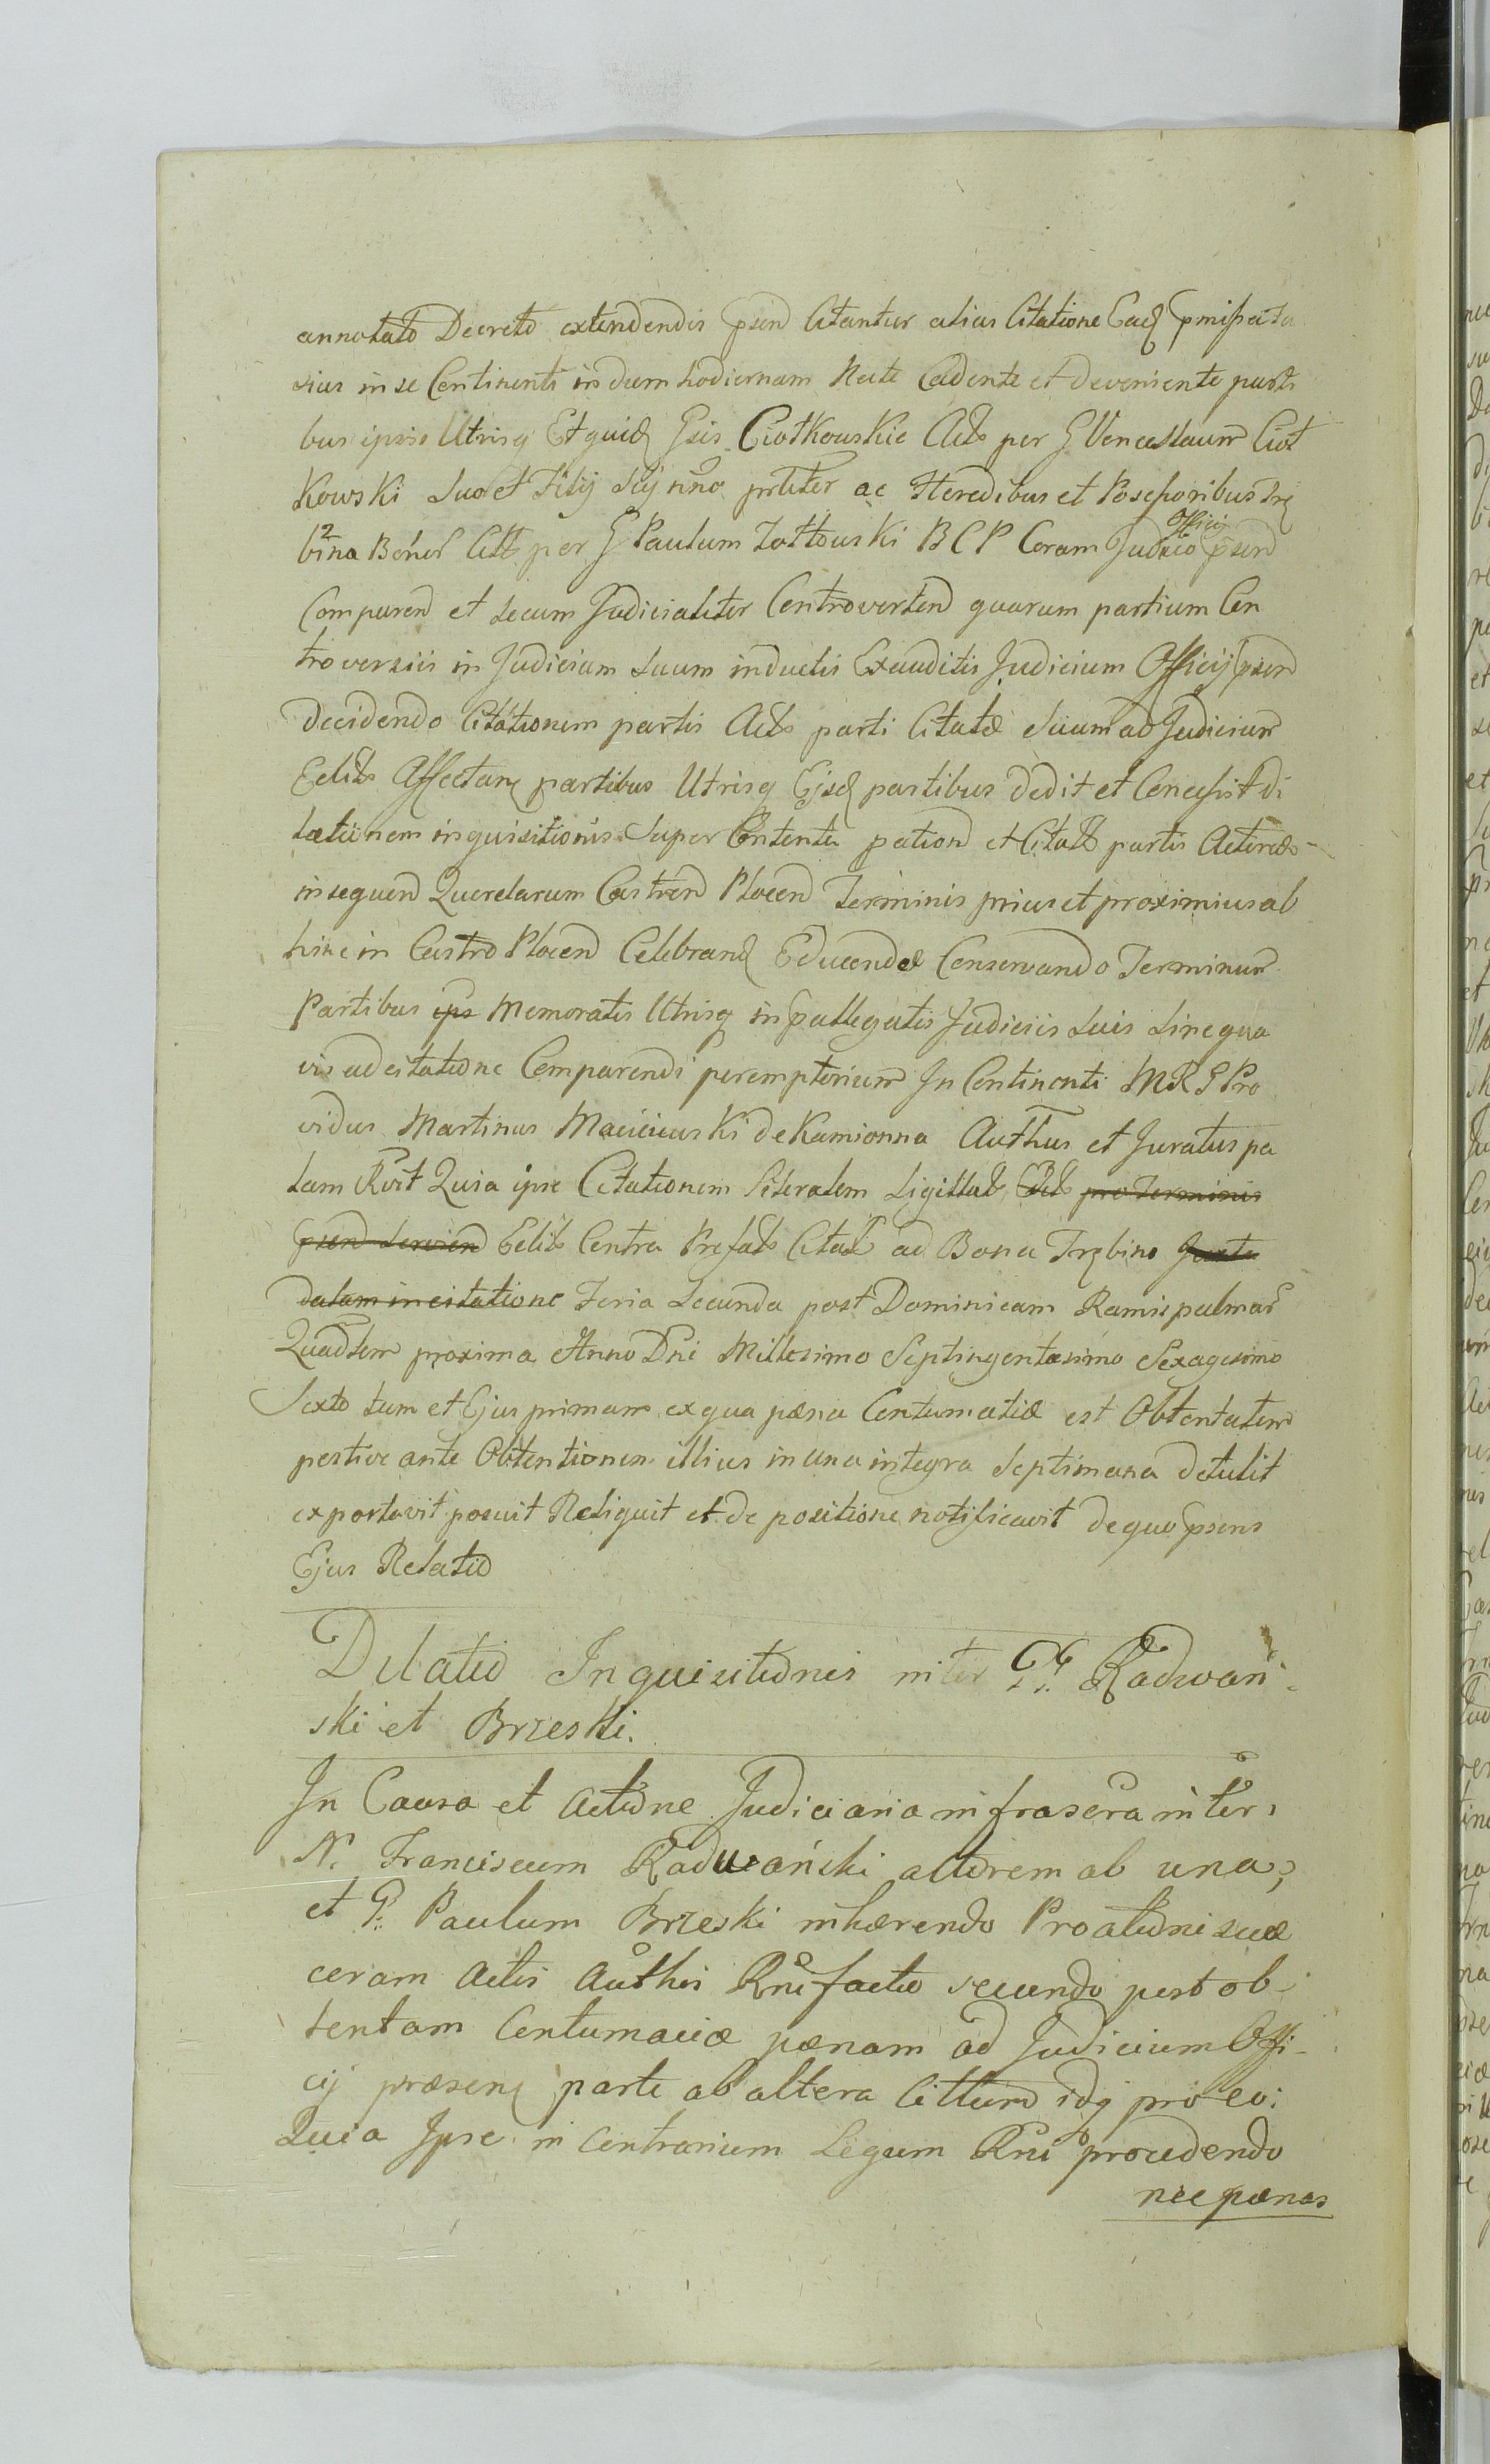 annotato Decreto extendendis psend Citantur alias Citatione Eadq pmissa la
sius in se Continenti in diem hodiernam Rete Cadente et deveniente parti
bus ipsis Utrisq Et quidq Gsis Ciotkowskie Acts per G Venceslaum Ciot
kowski Suo et Filij Sui nno prliter ac Heredibus et Possessoribus Trę
bina Bonor Citt per G Paulum Zottowski B C P Coram Judicio Officij psend
Comparend et secum Judicialiter Controvertend quarum partium Con
troversiis in Judicium suum inductis Exauditis Judicium Officij psend
Decidendo Citationem partis Acts parti Citatæ Suam ad Judicium
Edits Affectanq partibus Utrisq Ejsdq partibus dedit et Concessit di
lationem inquisitionis Super Contenta pation et Citats partis Actoreæ
in sequend Querelarum Castrend Plocend Terminis prius et proximius ab
hinc in Castro Plocend Celebrandq Educendæ Conservando Terminum
Partibus ips Memoratis Utrisq in pallegatis Judiciis Suis Sine qua
vis adcitatione Comparendi peremptorium In Continenti MRS Pro
vidus Martinus Maciciewski de Kamionna Authus et Juratus pa
lam Rvit Quia ipse Citationem literalem Sigillats Edts pro Terminis
psend Servien Edits Contra Prefats Citats ad Bona Trębino Juxta
datam in citatione Feria Secunda post Dominicam Ramispalmar
Quadtem proxima Anno Dni Millesimo Septingentesimo Sexagesimo
Sexto tum et Ejus primam ex qua pæna Contumatiæ est Obtenta tem
pestive ante Obtentionem illius in una integra Septimana detulit
exportavit posuit Reliquit et de positione notificavit de quo psens
Ejus Relatio
Dilatio Inquisitionis inter GG. Radwań-
ski et Brzeski.
In Causa et actione Judiciaria infrascra inter
N. Franciscum Radwański actorem ab una,
et G. Paulum Brzeski inhærendo Proationi suæ
coram actis Authis Rni facto secundo post ob-
tentam Contumaciæ pænam ad Judicium Offi-
cij præsenq parte ab altera Cittum idq pro eo:
Quia Ipse in Contrarium Legum Rni procedendo
nec pænas